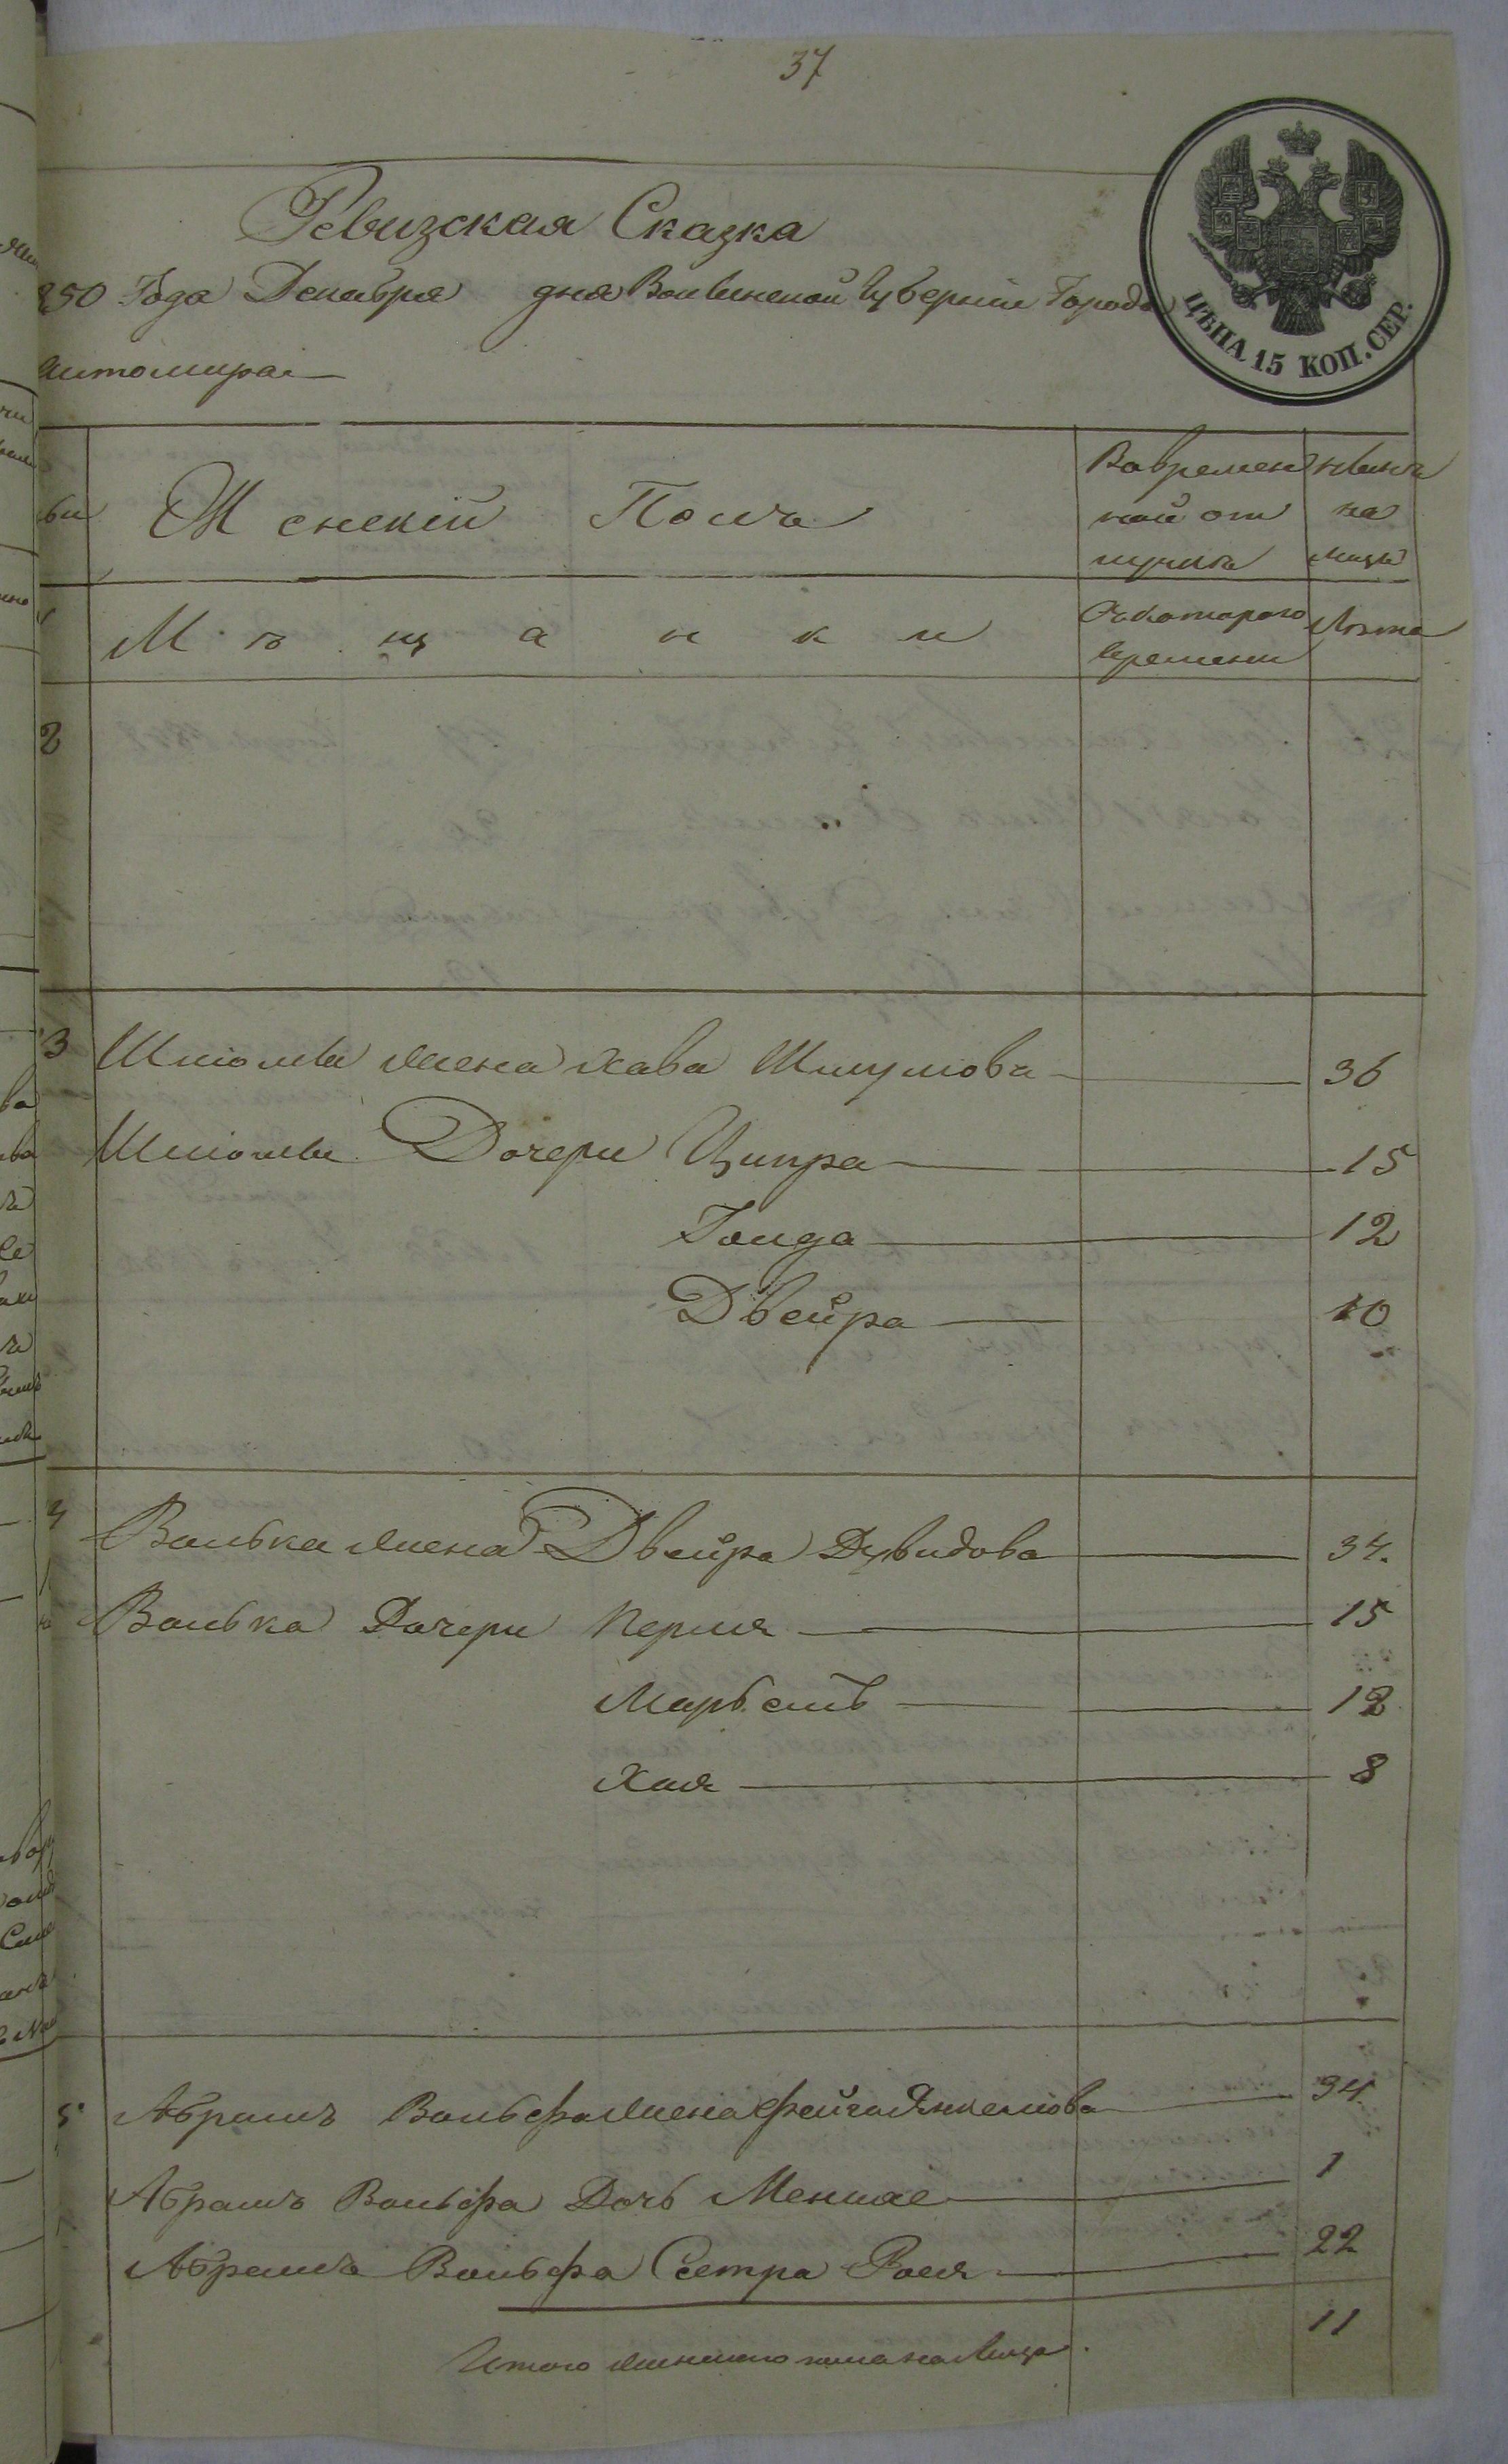 37
Ревизская Сказка
850 Года Декабря дня Волынской Губернии Города
итомира
ЦѢНА 15 КОП. СЕР.
Женскій Полъ
Вовремен
ной от
лучкѣ
нынѣ
на
лицѣ
Мѣщанки
Съкотораго
времени
Лѣта
2
3 Шліомы жена Хава Шмулова 36
Шліомы Дочери Ципра 15
Голда 12
Двейра 10
4 Волька жена Двейра Дувидова 34.
Волька Дочери Перля 15
Марьемъ 12
Хая 8
5 Абрамъ Вольфа жена Фейга Янкелюва 34
Абрамъ Вольфа Дочь 1
Абрамъ Вольфа Сестра 22
Итого женскаго пола на Лицо. 11